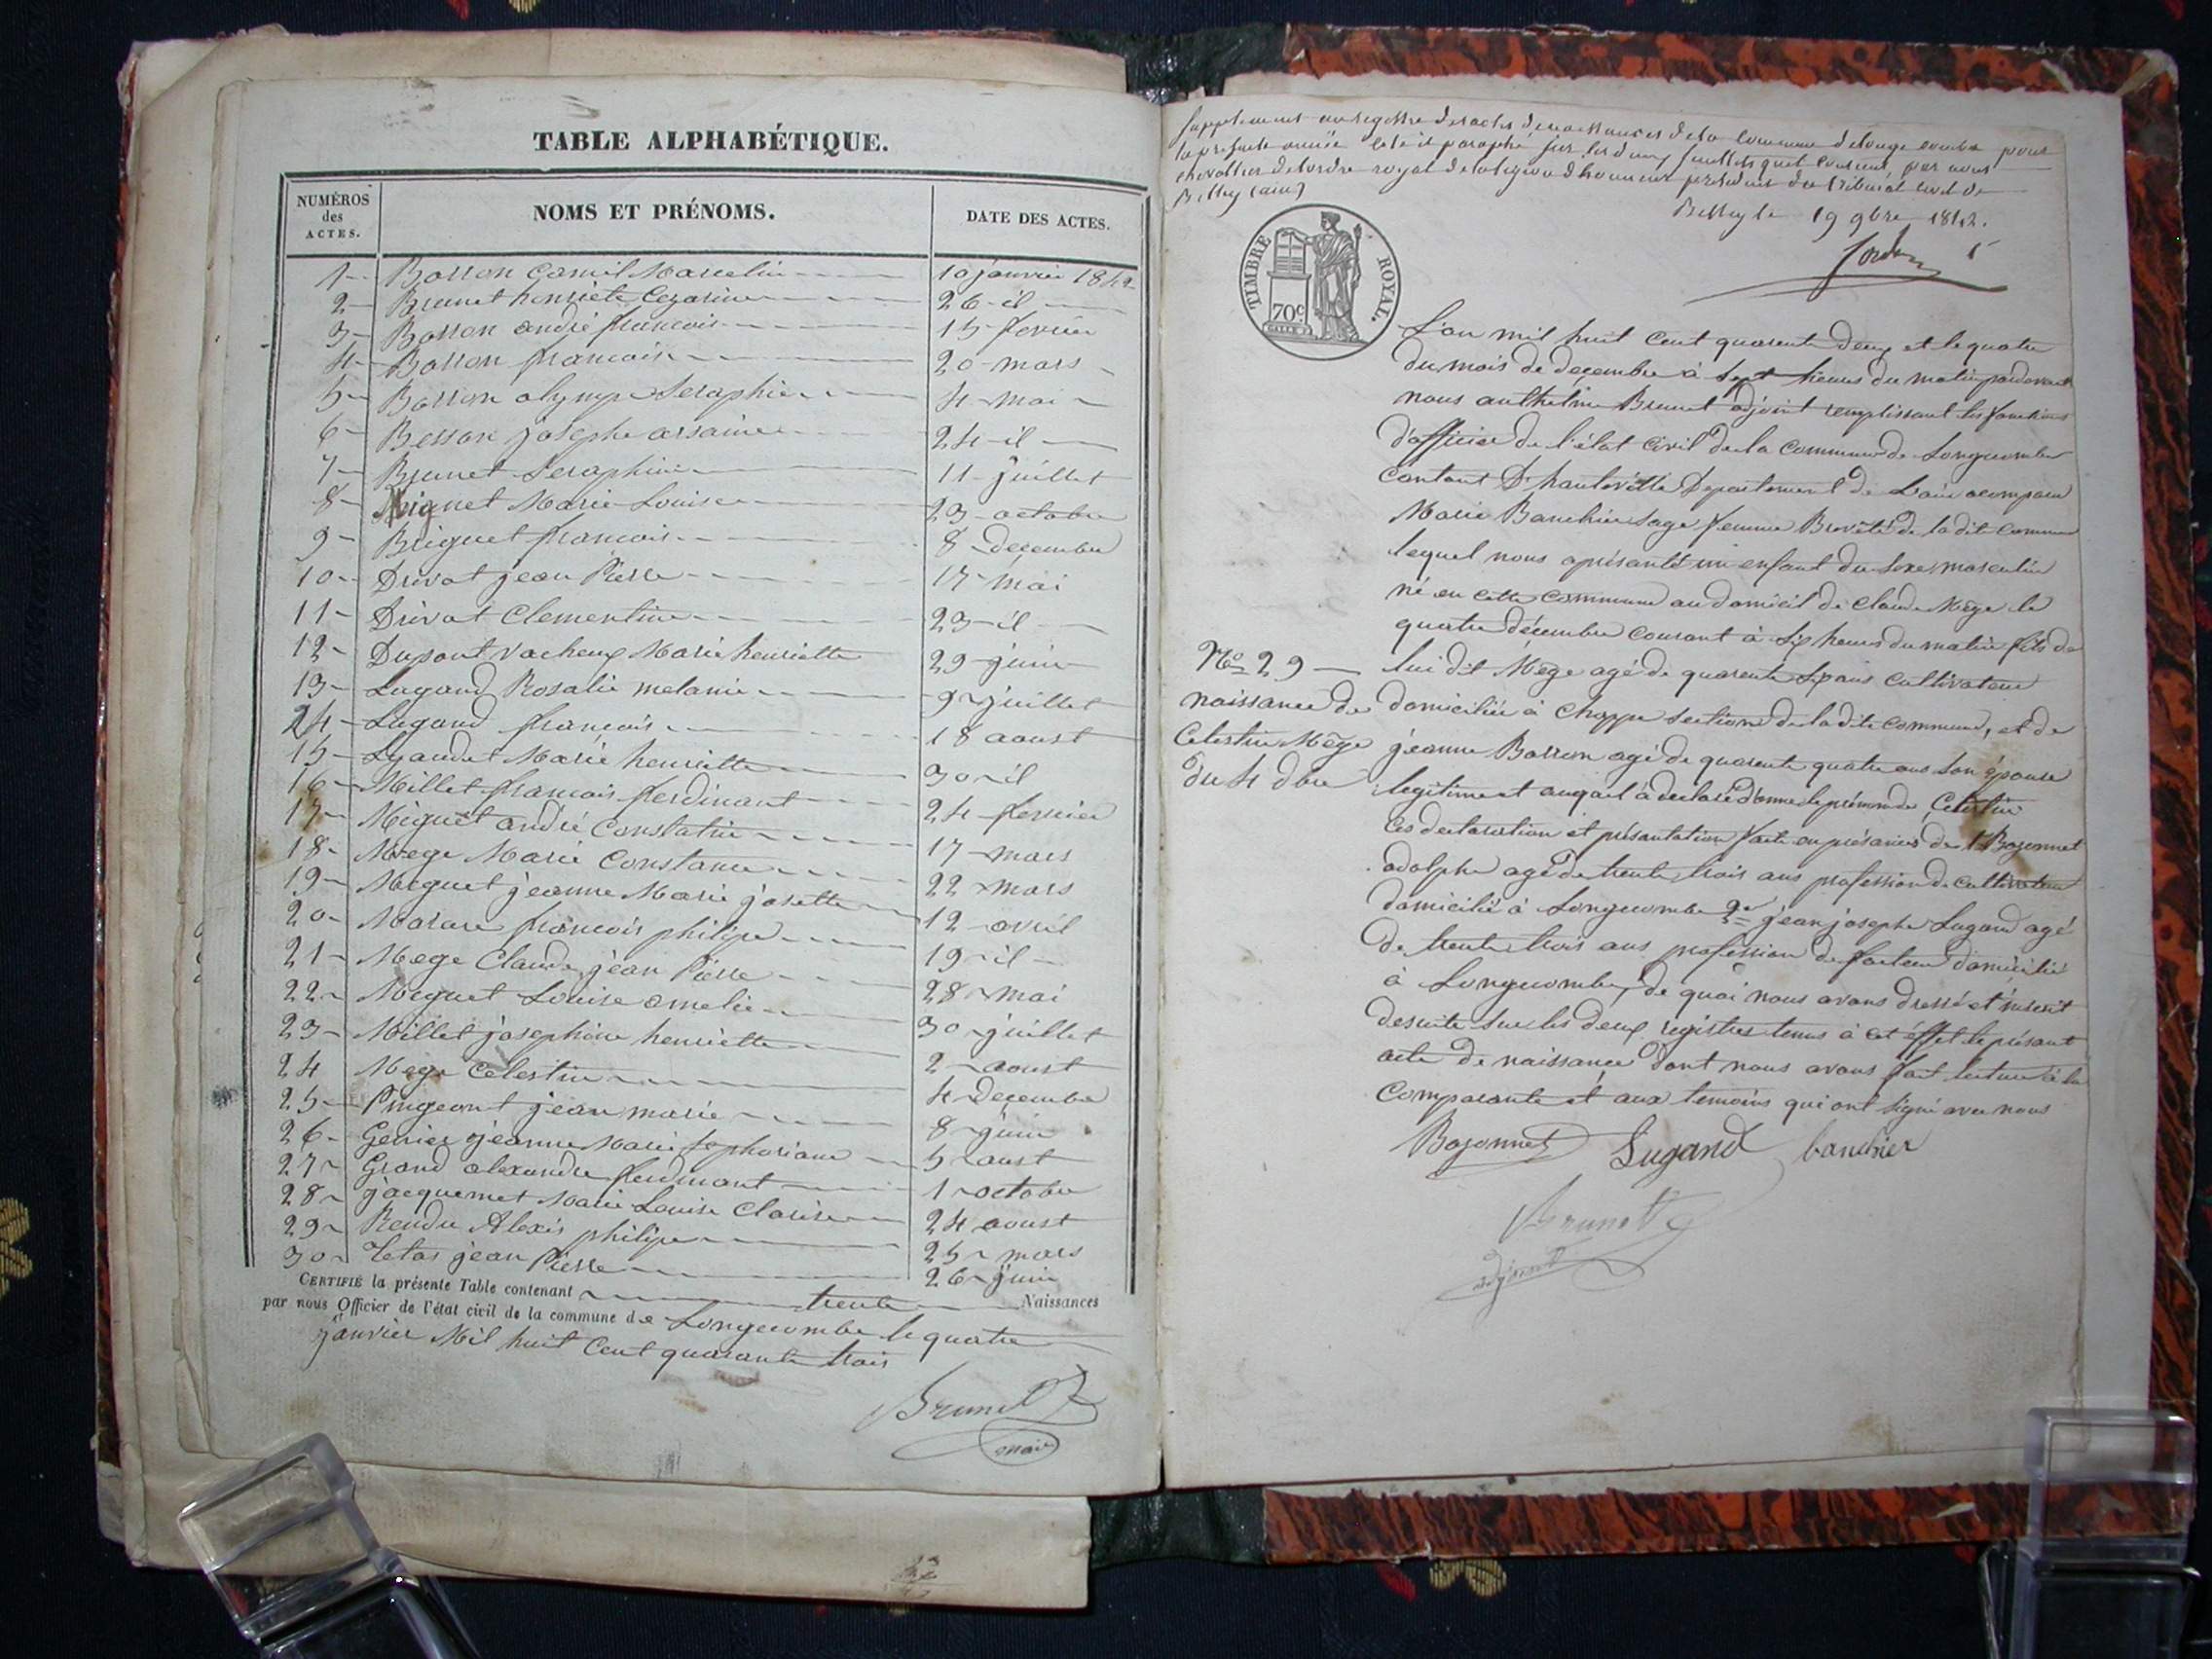 TABLE ALPHABÉTIQUE.
NUMÉROS des ACTES. NOMS ET PRÉNOMS. DATE DES ACTES.
1 Borron Camil Marcelin 10 janvier 1842
2 Brunet henriete Cezarine 26 - il
3 Borron andré francois 15 fevrier
4 Borron francois 20 mars
5 Borron olympe Seraphie 4 mai
6 Besson josephe arsaine 24 il
7 Brunet Seraphine 11 juillet
8 Miguet Marie Louise 23 octobre
9 Briguet francois 8 decembre
10 Drivat jean Pierre 17 mai
11 Drivat Clementine 23 il
12 Dupont vacheux Marie henriette 29 juin
13 Lugand Rosalie melanie 9 juillet
14 Lugand francois 18 aoust
15 Lyaudet Marie henriette 30 il
16 Millet francois ferdinant 24 fevrier
17 Miguet andré Constatin 17 mars
18 Mege Marie Constance 22 mars
19 Meguet jeanne Marie josette 12 avril
20 francois philipe 19 il
21 Mege Claude jean Pierre 28 mai
22 Meguet Louise amelie 30 juillet
23 Millet josephine henriette 2 aoust
24 Mege Celestin 4 Decembre
25 Pingeont jean marie 8 juin
26 Genier jeanne Marie 5 aust
27 Grand alexandre ferdinant 1 octobre
28 jacquemet Marie Louise Clarise 24 aoust
29 Rendu Alexis philipe 25 mars
30 Tetas jean Pierre 26 juin
CERTIFIÉ la présente Table contenant trente Naissances
par nous Officier de l'état civil de la commune de Longecombe le quatre
janvier Mil huit Cent quarante trois
Brunet
maire
Supplement au registre des actes de naissances de la commune de longecombe pour
la presente année coté et paraphé sur les deux feuillets quil contient, par nous
chevallier de lordre royal de la legion dhonneur president du tribunal civil de
Belley (ain)
Belley le 19 9bre 1842.
TIMBRE ROYAL.
70c
L'an mil huit Cent quarente deux et le quatre
du mois de decembre à sept heures du matin pardevant
nous anthelme Brunet adjoint remplissant les fonctions
d'officier de l'état Civil de la commune de Longecombe
Cantont D'hauteville Departement de L'ain a comparu
Marie Banchin sage femme Brovété de la dite Commune
lequel nous a présanté un enfant du sexe masculin
né en cette commune au domicil de claude Mège le
quatre décembre Courant à six heures du matin fils de
No 29 lui dit Mège agé de quarente six ans cultivateur
naissance de domicilié à Choppe section de la dite commune, et de
Celestin Mège jeanne Borron agé de quarente quatre ans son épouse
du 4 dbre legitime et auquel à declaré donner le prénom de Celestin
Ces declaration et présantation faite en présance de 1 Bozonnet
adolphe agé de trente trois ans profession de cultivateur
domicilié à Longecombe 2e jean josephe Lugand agé
de trente trois ans profession de facteur domicilié
à Longecombe, de quoi nous avons dressé et inscrit
desuite sur les deux registres tenus à cet éffet le présant
acte de naissance dont nous avons fait lecture à la
Comparante et aux temoins qui ont signé avec nous
Bozonnet Lugand banchier
Brunet
adjoint